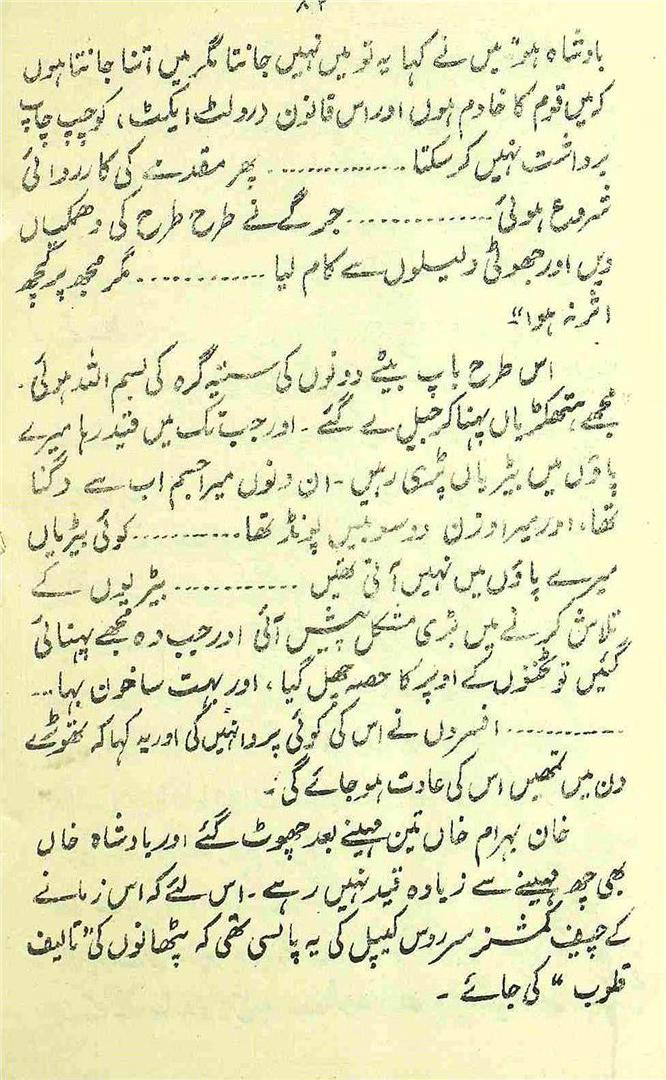 ۸۲
بادشاہ ہو" میں نے کہا یہ تو میں نہیں جانتا مگر میں اتنا جانتا ہوں
کہ میں قوم کا خادم ہوں اور اس قانون (رولٹ ایکٹ، کو چپ چاپ
برداشت نہیں کر سکتا .............. پھر مقدمے کی کارروائی
شروع ہوئی .............. جرگے نے طرح طرح کی دھمکیاں
دیں اور جھوٹی دلیلوں سے کام لیا ............ مگر مجھ پر کچھ
اثر نہ ہوا"
اس طرح باپ بیٹے دونوں کی ستیہ گرہ کی بسم اللہ ہوئی۔
مجھے ہتھکڑیاں پہنا کر جیل لے گئے۔ اور جب تک میں قید رہا میرے
پاؤں میں بیڑیاں پڑی رہیں۔ ان دنوں میرا جسم اب سے دگنا
تھا، اور میرا وزن دو سو بیس پونڈ تھا .......... کوئی بیڑیاں
میرے پاؤں میں نہیں آتی تھیں ............ بیڑیوں کے
تلاش کرنے میں بڑی مشکل پیش آئی اور جب وہ مجھے پہنائی
گئیں تو ٹخنوں کے اوپر کا حصہ چھل گیا، اور بہت سا خون بہا...
............ افسروں نے اس کی کوئی پروا نہیں کی اور یہ کہا کہ تھوڑے
دن میں تمھیں اس کی عادت ہو جائے گی۔
خان بہرام خاں تین مہینے بعد چھوٹ گئے اور بادشاہ خاں
بھی چھ مہینے سے زیادہ قید نہیں رہے۔ اس لئے کہ اس زمانے
کے چیف کمشنر سر روس کیپل کی یہ پالسی تھی کہ پٹھانوں کی "تالیف
قلوب" کی جائے۔